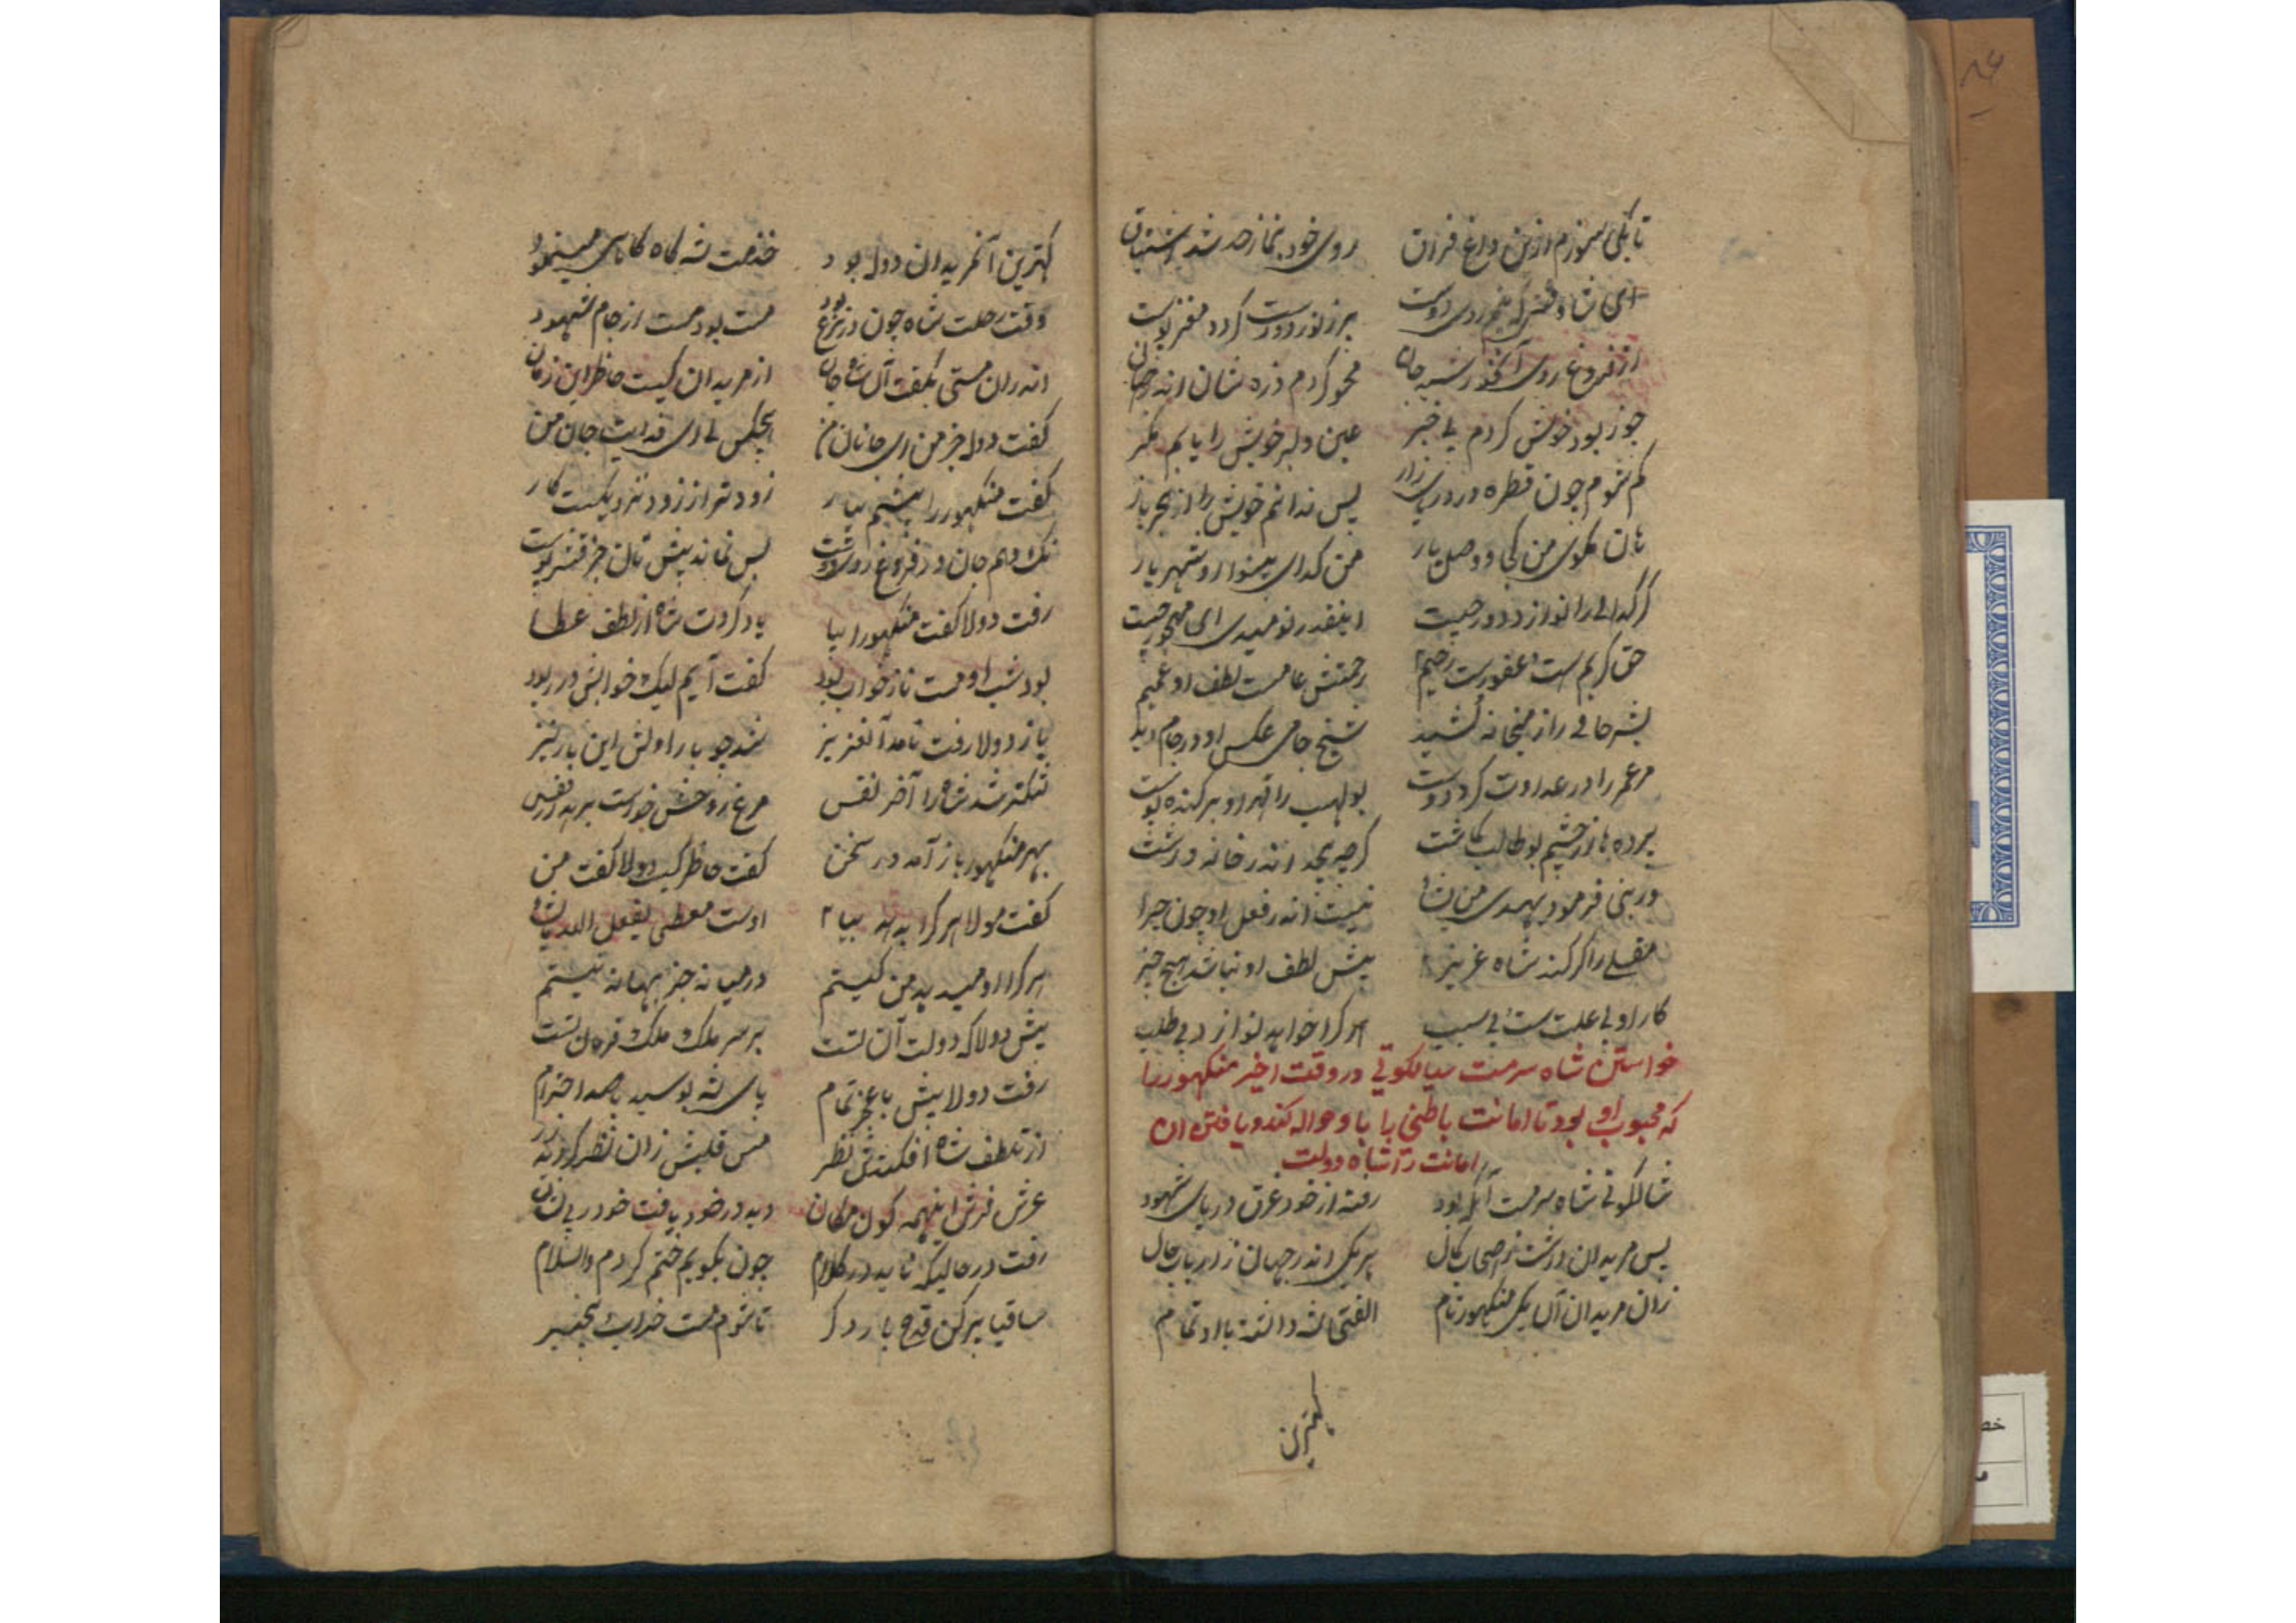 تا بکی سوزم ازین داغ فراق روی خود بنما ز حد شد اشتیاق
ای خوش که بینم روی دوست نور دوست گردد مغز پوست
از فروغ روی آن خورشید جان محو گردم ذره سان اندر جهان
چو ز بود خویش گردم بی خبر عین دلبر خویش را یابم مگر
گم شوم چون قطره در دریای راز پس ندانم خویش را از بحر باز
هان مگوی من کجا و وصل یار من گدای بینوا و شهریار
گر گدائی را نوازد دور چیست اینقدر نومیدی ای مهجور چیست
حق کریم ست و غفورست و رحیم رحمتش عامست لطف او عمیم
بشر حافی را ز میخانه کشید شیخ جامی عکس او در جام دید
مر عمر را در عداوت کرد دوست بولهب را قهر او برکنده پوست
پرده ها از چشم بوطالب نگاشت گرچه بیحد اندر خانه داشت
ور نبی فرمود یهدی من یشا نیست اندر فعل او چون و چرا
مقبلی را گر کند شاه عزیز پیش لطف او نباشد هیچ چیز
کار او بی علت ست و بی سبب هر کرا خواهد نوازد بی طلب
خواستن شاه سرمست سیالکوتی در وقت اخیر منکهور را
که محبوب او بود تا امانت باطنی را باو حواله کند و یافتن ان
امانت را شاه دولت
شالکوتی شاه سرمست آنکه بود رفته از خود غرق دریای شهود
پس مریدان داشت ز اصحاب کمال هر یکی اندر جهان ز ارباب حال
زان مریدان آن یکی منکهور نام الفتی شه داشته با او تمام
کهترین
کهترین آن مریدان دوله بود خدمت شه گاه گاهی مینمود
وقت رحلت شاه چون در نزع بود مست بود مست از جام شهود
اندران مستی بگفت آن شاه جان از مریدان کیست حاضر این زمان
گفت دوله جز من ای جانان من هیچکس نی ای فدایت جان من
گفت منکهور را پیشم بیار زودتر از زود نزدیکست کار
نک دهم جان در فروغ روی دوست پس نماند پیش تان جز قشر پوست
رفت دولا گفت منکهورا بیا یاد کردت شاه از لطف عطا
بود شب او مست ناز خواب بود گفت آیم لیک خوابش در ربود
باز دولا رفت نامد آن عزیز شد چو بار اولش این بار نیز
تنگتر شد شاه را آخر نفس مرغ روحش خواست بر پرد از قفس
بهر منکهور باز آمد در سخن گفت حاضر کیست دولا گفت من
گفت مولا هر کرا بدهد بیا اوست معطی یفعل الله یشا
هر کرا او میدهد من کیستم در میانه جز بهانه نیستم
پیش دولا که دولت آن تست بر سر ملک و ملک فرمان تست
رفت دولا پیش با عجز تمام پای شه بوسید با صد احترام
از تلطف شاه افکندش نظر مس قلبش زان نظر گردید زر
عرش فرش اینهمه کون و مکان دید در خود یافت خود را بی نشان
رفت در حالیکه ناید در کلام چون بگویم ختم کردم والسلام
ساقیا پر کن قدح بار دگر تا شوم مست خراب بیخبر